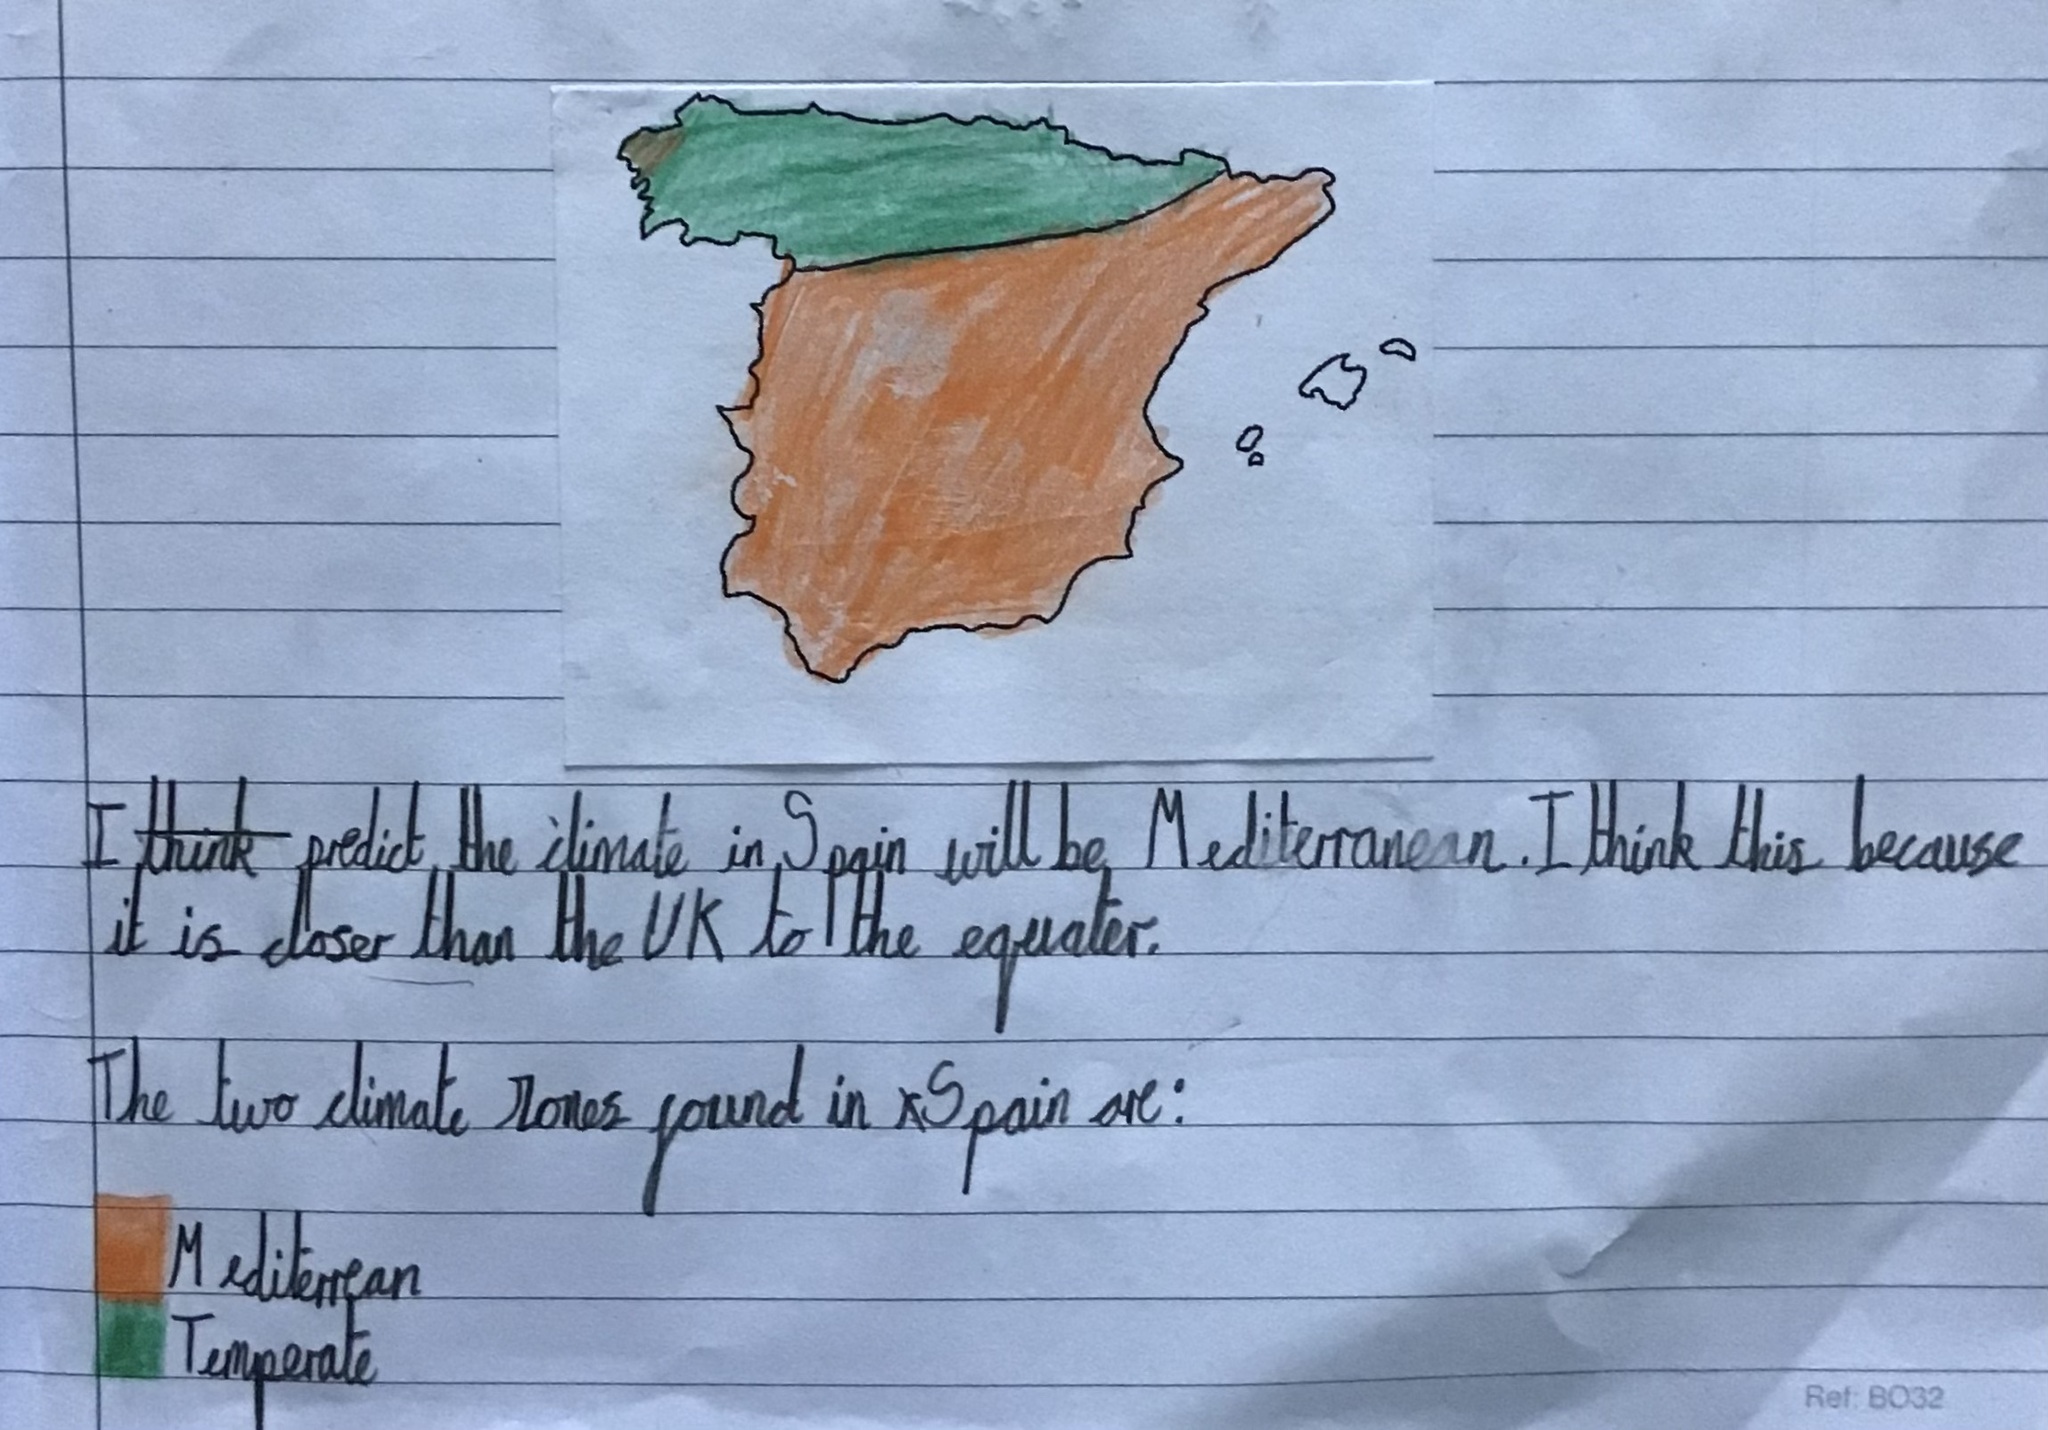 I think predict the climate in Spain will be Mediterranean. I think this because
it is closer than the UK to the equater.
The two climate zones found in Spain are:
Mediterrean
Temperate
Ref: BO32